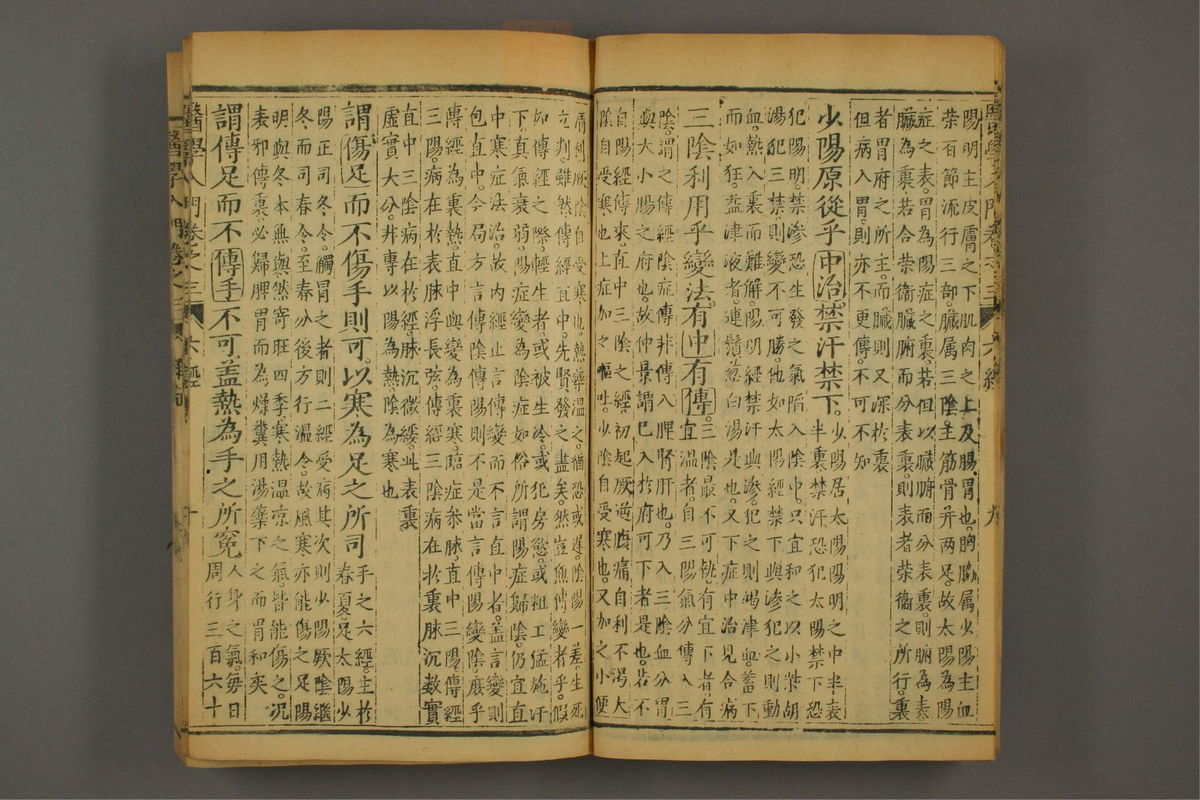 陽明主皮膚之下肌肉之上及腸胃也胸脇属少陽主血
荣百節流行三部臓属三陰主筋骨并两足故太陽為陽
症之表胃為陽症之裏若但以臓腑而分表裏則腑為表
臓為裏若合荣衞臓腑而分表裏則表者荣衞之所行裏
者胃府之所主而臓則又深於裏
但病入胃則亦不更傳不可不知
少陽原從乎中治禁汗禁下少陽居太陽陽明之中半表半裏禁汗恐犯太陽禁下恐
犯陽明禁滲恐生發之氣陷入陰中只宜和之以小柴胡
湯犯三禁則變不可勝他如太陽經禁下與滲犯之則動
血熱入裏而難解陽明經禁汗與滲犯之則竭津血蓄下
而如狂益津液者連鬚葱白湯是也又下症中治見合病
三陰利用乎變法有中有傳三陰最不可執有宜下者有宜温者自三陽氣分傳入三
陰謂之傳經陰症傳非傳入脾腎肝也乃入三陰血分胃
與大小腸之府也故仲景謂已入於府可下者是也若不
自陽經傳來直中三陰之經初起厥逆腹痛自利不渴太
陰自受寒也上症加之嘔吐少陰自受寒也又加之小便
清利厥陰自受寒也熱藥温之猶恐或遲陰陽一差生死
立判雖然傳經直中先賢發之盡矣然豈無傳變者乎假
如傳經之際輕生者或被生冷或犯房慾或粗工猛施汗
下真氣衰弱陽症變為陰症如俗所謂陽症歸陰仍宜直
中寒症法治故内經止言傳變而不言直中者盖言變則
包直中今局方言傳陰傳陽則不是當言傳陽變陰庶乎
傳經為裏熱直中與變為裏寒臨症參脉直中三陽傳經
三陽病在於表脉浮長弦傳經三陰病在於裏脉沉数實
直中三陰病在於經脉沉微緩此表裏
虚實大分并專以陽為熱陰為寒也
謂傷足而不傷手則可以寒為足之所司手之六經主於春夏足太陽少
陽正司冬令觸冒之者則二經受病其次則少陽厥陰繼
冬而司春令至春分後方行温令故風寒亦能傷之足陽
明與冬本無與然寄旺四季寒熱温凉之氣皆能傷之况
表邪傳裏必歸脾胃而為燥糞用湯藥下之而胃和矣
謂傳足而不傳手不可盖熱為手之所寃人身之氣每日周行三百六十
醫學入門卷之三 六經